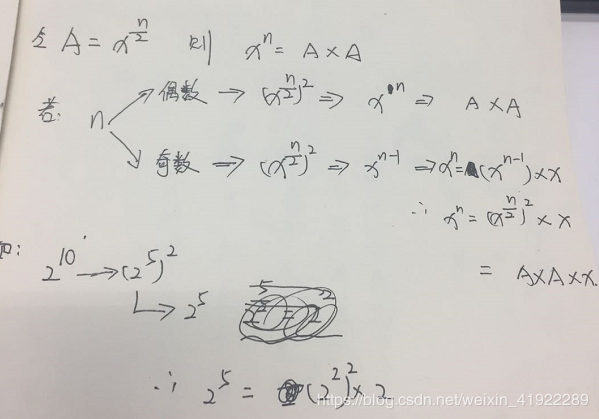 令 A = x^{n/2} 则 x^n = A × A
若: n → 偶数 → (x^{n/2})^2 ⇒ x^n ⇒ A × A
→ 奇数 ⇒ (x^{n/2})^2 ⇒ x^{n-1} ⇒ x^n = (x^{n-1}) × x
∴ x^n = (x^{n/2})^2 × x
= A × A × x.
如: 2^{10} → (2^5)^2
↳ 2^5
∴ 2^5 = (2^2)^2 × 2
https://blog.csdn.net/weixin_41922289